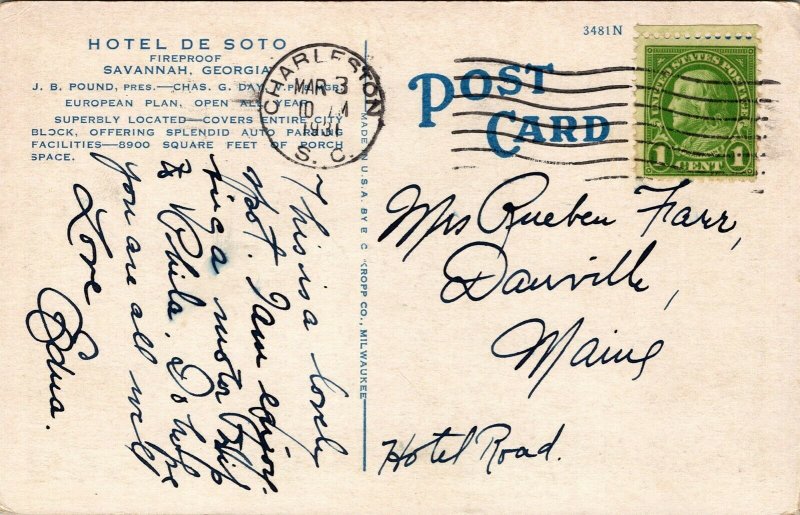 HOTEL DE SOTO
FIREPROOF
SAVANNAH, GEORGIA
J. B. POUND, PRES.—CHAS. G. DAY, V.PR.-MGR.
EUROPEAN PLAN, OPEN ALL YEAR
SUPERBLY LOCATED—COVERS ENTIRE CITY
BLOCK, OFFERING SPLENDID AUTO PARKING
FACILITIES—8900 SQUARE FEET OF PORCH
SPACE.
This is a lovely
spot. I am enjoy-
ing a motor trip
to Phila. I hope
you are all well
Love
Edna.
MADE IN U.S.A. BY E. C. KROPP CO., MILWAUKEE
CHARLESTON
MAR 3
1931
S. C.
3481N
POST
CARD
UNITED STATES POSTAGE
1 CENT 1
Mrs Rueben Farr,
Danville,
Maine
Hotel Road.